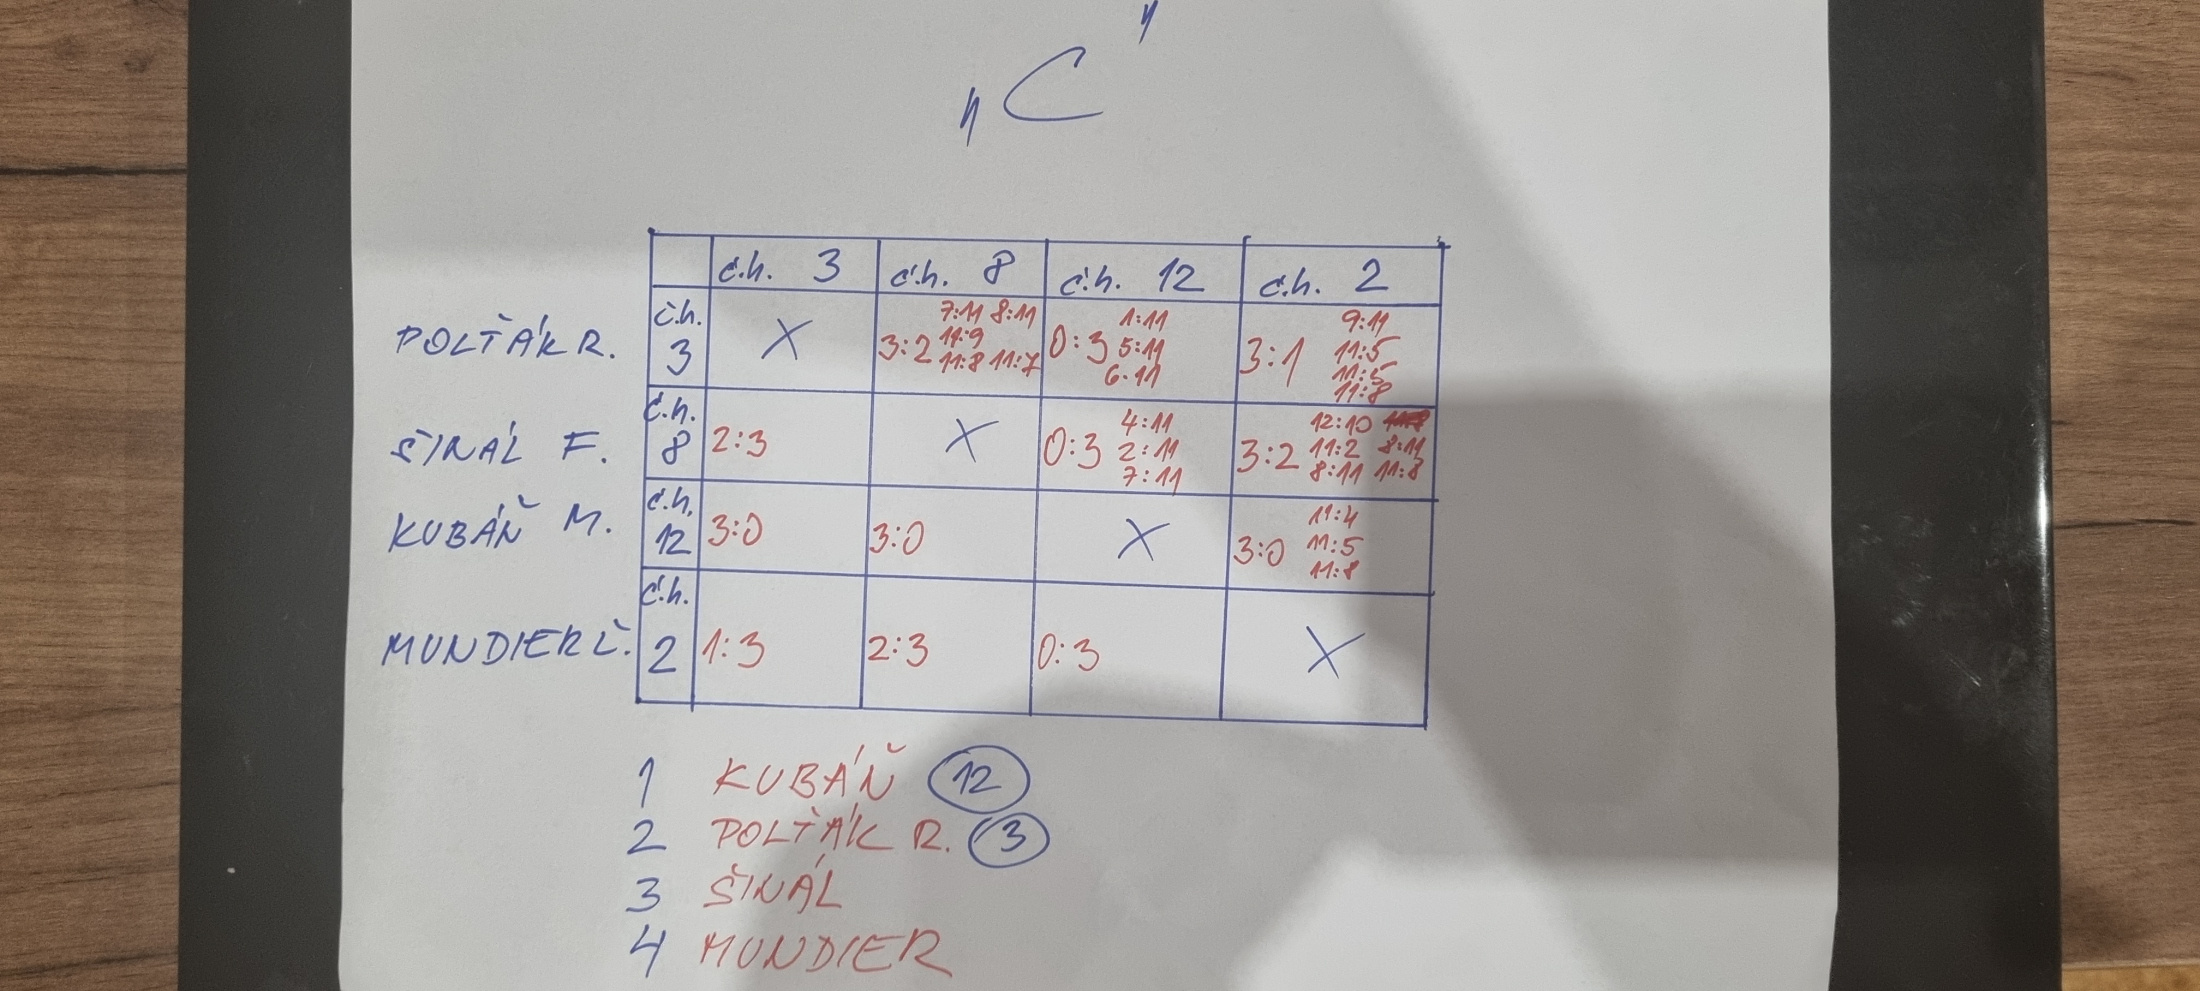 "C"
č.h. 3 č.h. 8 č.h. 12 č.h. 2
POLŤÁK R. č.h. 3 X 3:2 7:11 8:11 11:9 11:8 11:7 0:3 1:11 5:11 6:11 3:1 9:11 11:5 11:5 11:8
ŠINÁL F. č.h. 8 2:3 X 0:3 4:11 2:11 7:11 3:2 12:10 11:2 8:11 8:11 11:8
KUBÁŇ M. č.h. 12 3:0 3:0 X 3:0 11:4 11:5 11:8
MUNDIER Ľ. č.h. 2 1:3 2:3 0:3 X
1 KUBÁŇ 12
2 POLŤÁK R. 3
3 ŠINÁL
4 MUNDIER